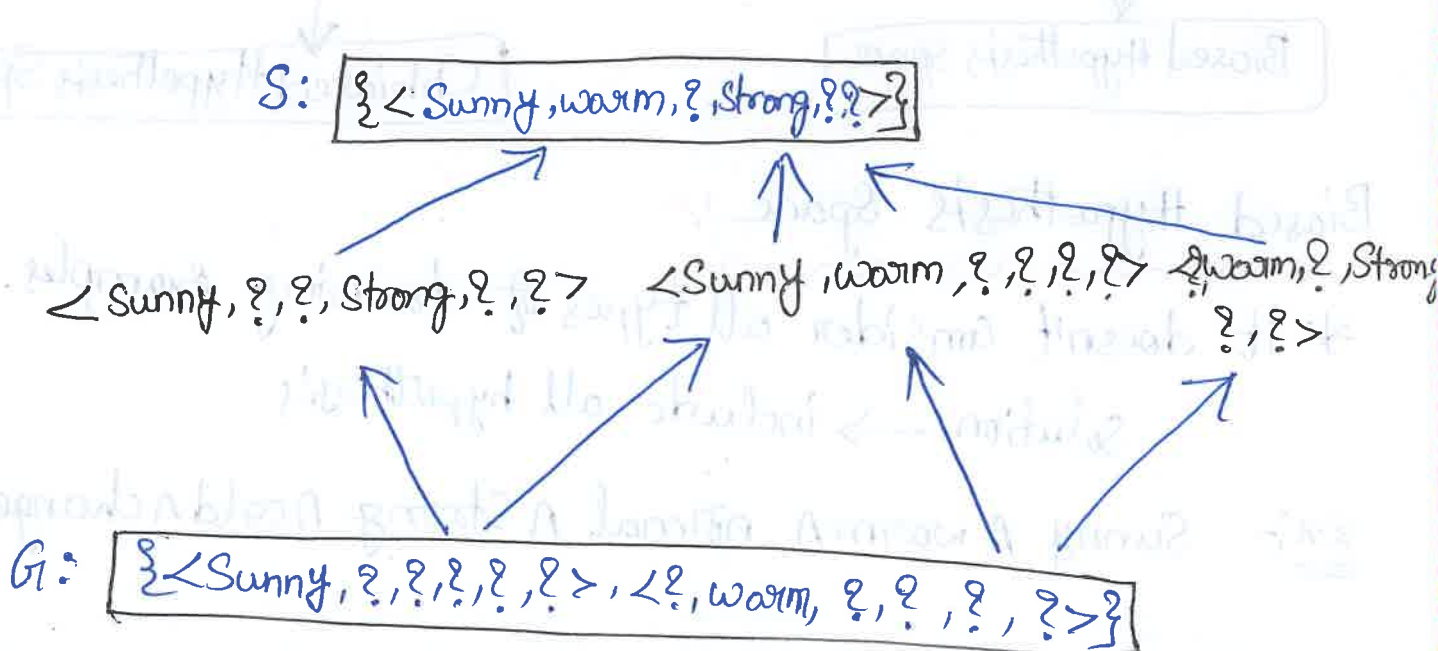 S: {<Sunny, warm, ?, strong, ?, ?>}
<Sunny, ?, ?, Strong, ?, ?> <Sunny, warm, ?, ?, ?, ?> <?, warm, ?, Strong
?, ?>
G: {<Sunny, ?, ?, ?, ?, ?>, <?, warm, ?, ?, ?, ?>}